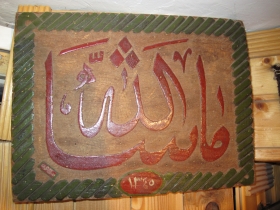 ما شاء الله
١٣٤٥